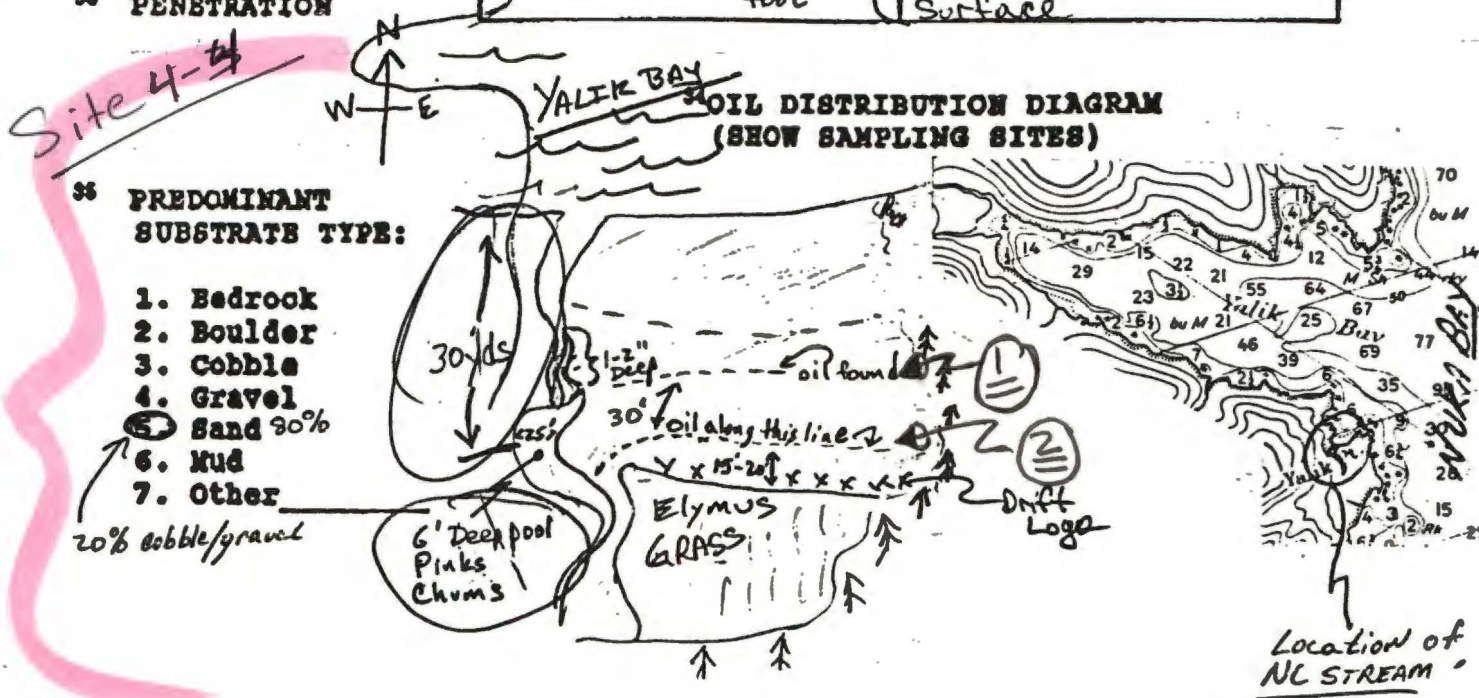 PENETRATION
Surface
Site 4-4
N
W E
YALIK BAY
OIL DISTRIBUTION DIAGRAM
(SHOW SAMPLING SITES)
35 PREDOMINANT
SUBSTRATE TYPE:
1. Bedrock
2. Boulder
3. Cobble
4. Gravel
5. Sand 80%
6. Mud
7. Other
20% cobble/gravel
30 yds
1-2" Deep
oil found
1
30'
oil along this line
2
<25'
15'-20'
Drift Logs
Elymus
GRASS
6' Deep pool
Pinks
Chums
70
bu M
14
29
2
15
22
21
4
5
12
M Sh
44
23
3½
55
64
50
67
Yalik Bay
25
6½
bu M
21
46
39
69
77
7
2½
6
35
NUKA BAY
30
15
4
3
2
Location of
NC STREAM